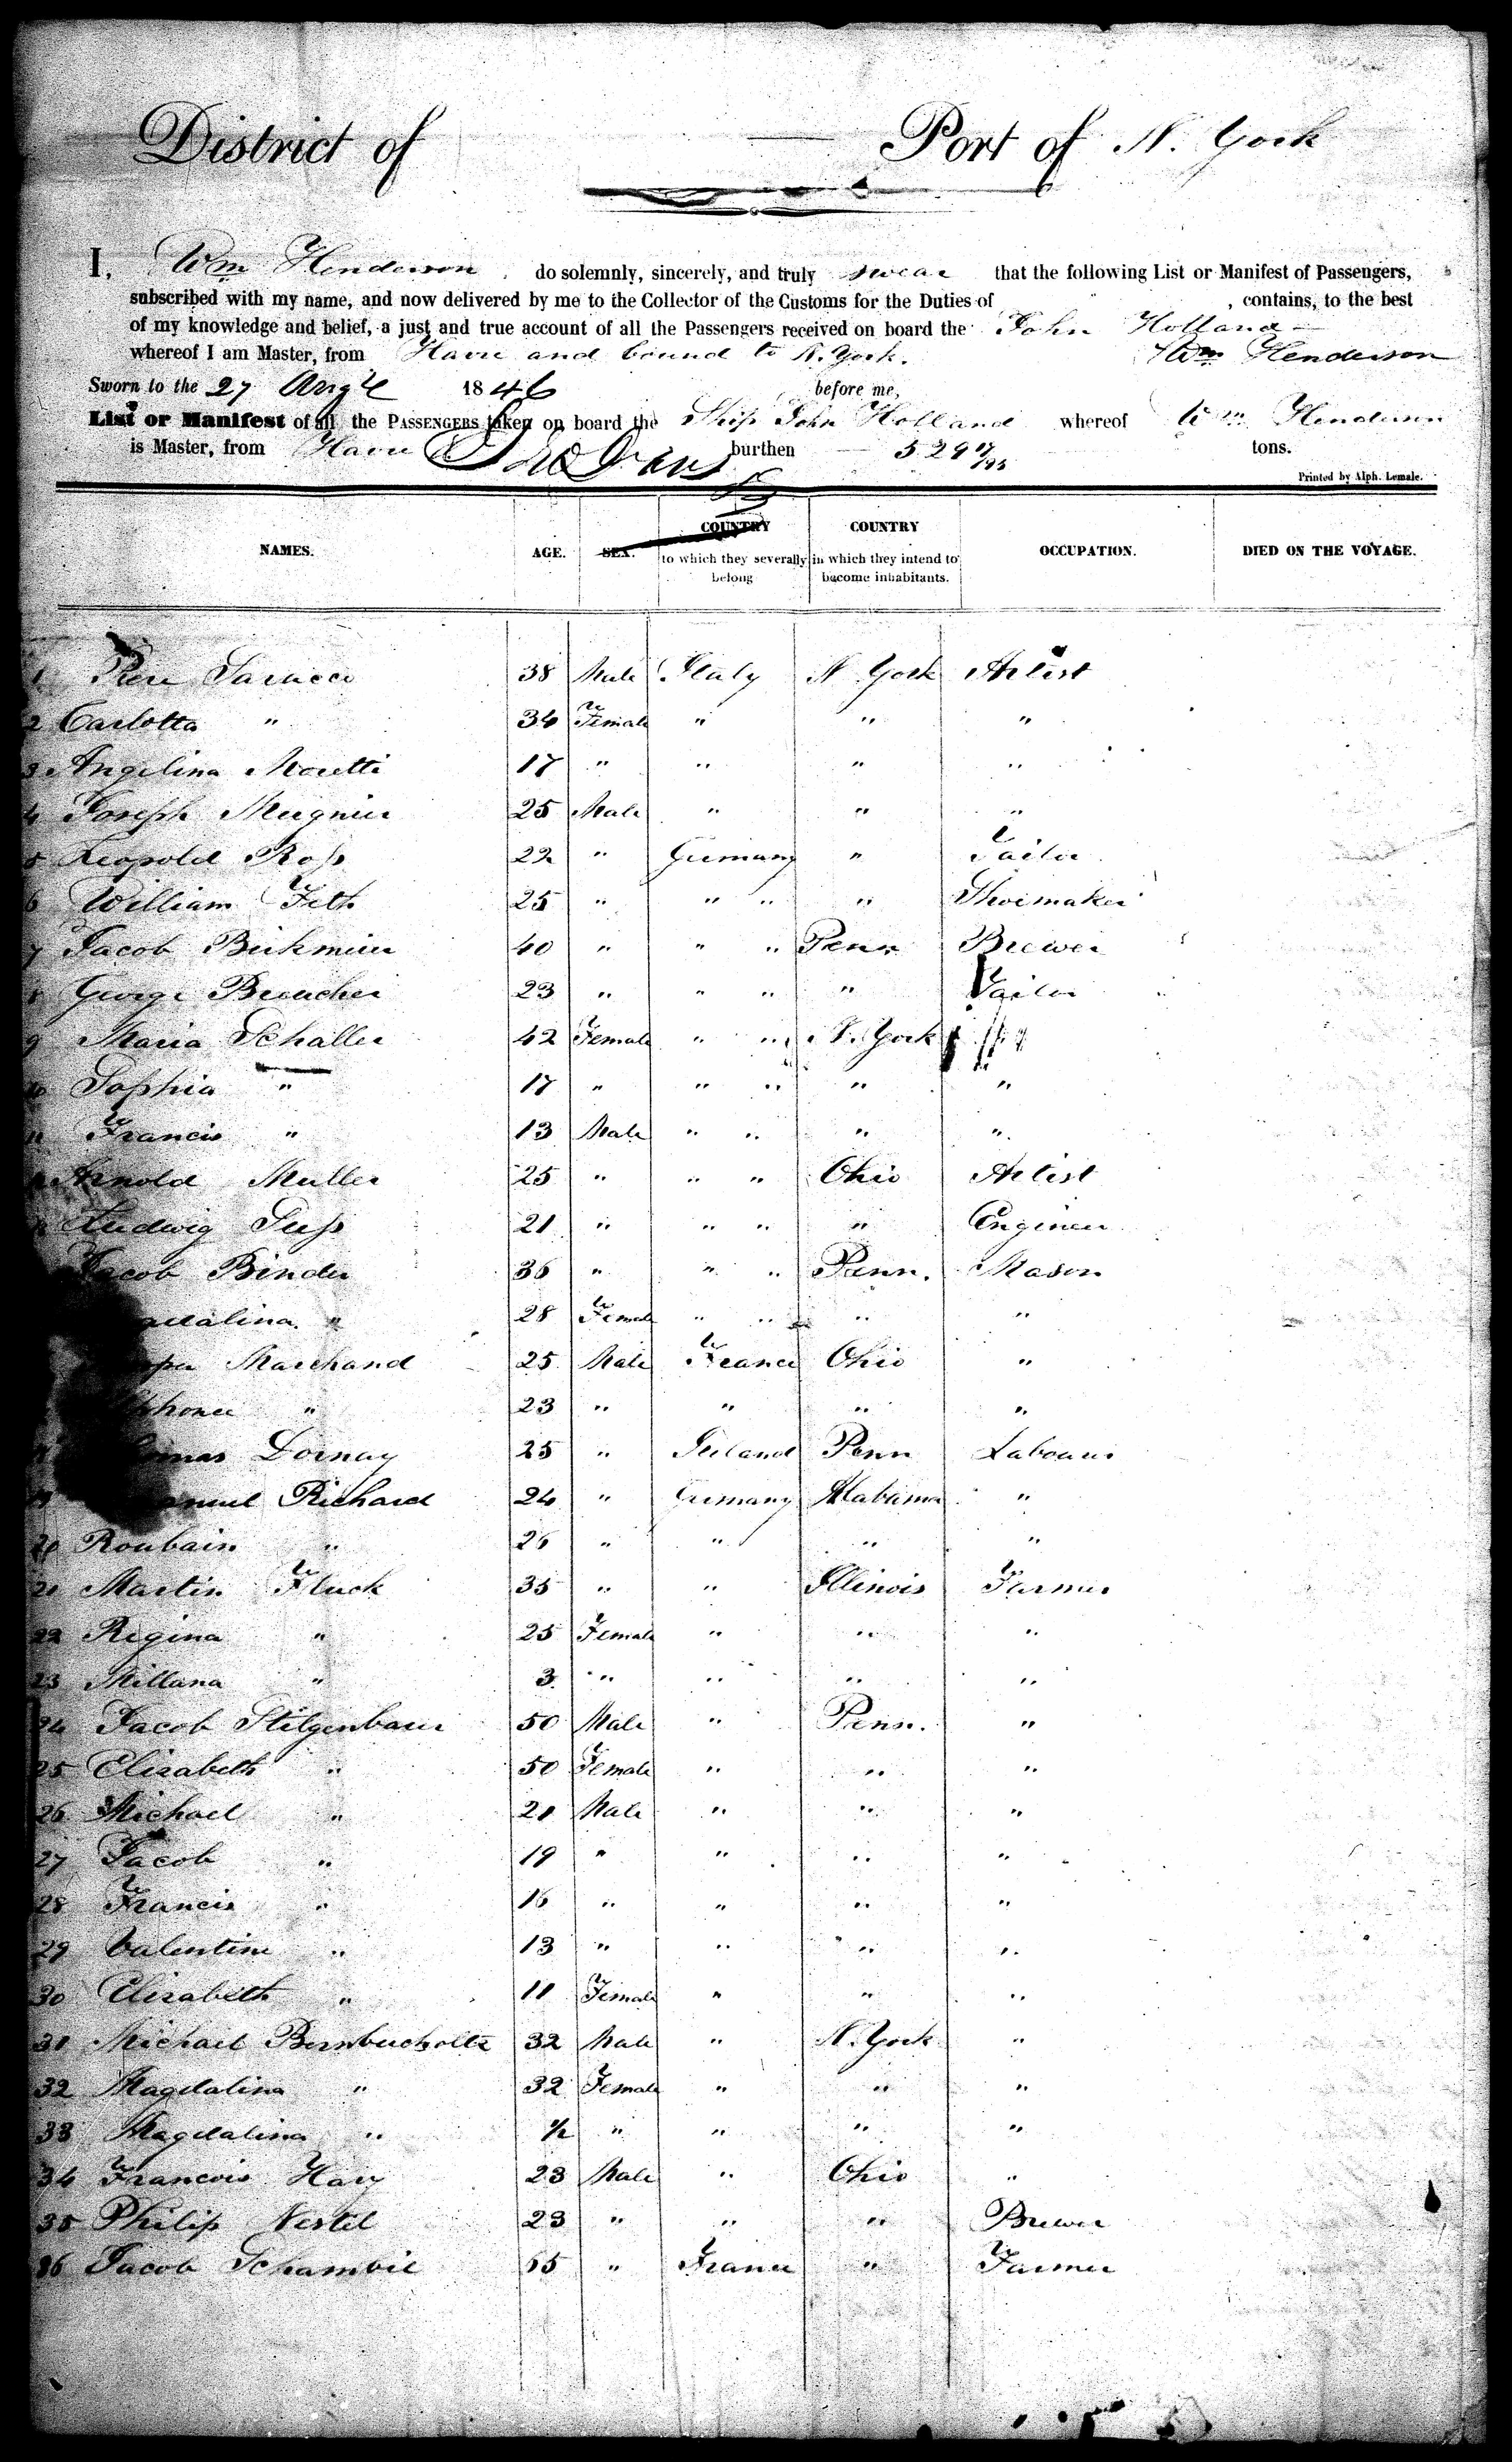 District of — Port of N. York
I, Wm Henderson, do solemnly, sincerely, and truly swear that the following List or Manifest of Passengers,
subscribed with my name, and now delivered by me to the Collector of the Customs for the Duties of , contains, to the best
of my knowledge and belief, a just and true account of all the Passengers received on board the John Holland
whereof I am Master, from Havre and bound to N. York. Wm Henderson
Sworn to the 27 1846 before me,
List or Manifest of all the PASSENGERS taken on board the Ship John Holland whereof Wm Henderson
is Master, from Havre burthen 529 17/95 tons.
Printed by Alph. Lemale.
NAMES. AGE. SEX. COUNTRY to which they severally belong COUNTRY in which they intend to become inhabitants. OCCUPATION. DIED ON THE VOYAGE.
1 38 Male Italy N. York Artist
2 Carlotta " 34 Female " " "
3 Angelina Moretti 17 " " " "
4 Joseph Mugnier 25 Male " " "
5 Leopold Ross 22 " Germany " Tailor
6 William Feth 25 " " " " Shoemaker
7 Jacob Birkmeier 40 " " " Penn Brewer
8 George Breucher 23 " " " " Tailor
9 Maria Schaller 42 Female " " N. York
10 Sophia " 17 " " " " "
11 Francis " 13 Male " " " "
12 Arnold Muller 25 " " " Ohio Artist
13 Ludwig 21 " " " " Engineer
Jacob Binder 36 " " " Penn. Mason
" 28 Female " " " "
Marchand 25 Male France Ohio "
" 23 " " " "
Dornay 25 " Ireland Penn Labourer
19 Richard 24 " Germany Alabama "
20 Roubain " 26 " " " "
21 Martin Fluck 35 " " Illinois Farmer
22 Regina " 25 Female " " "
23 Millana " 3 " " " "
24 Jacob Stilgenbauer 50 Male " Penn. "
25 Elisabeth " 50 Female " " "
26 Michael " 21 Male " " "
27 Jacob " 19 " " " "
28 Francis " 16 " " " "
29 Valentine " 13 " " " "
30 Elisabeth " 11 Female " " "
31 Michael Bernbucholtz 32 Male " N. York "
32 Magdalina " 32 Female " " "
33 Magdalina " 1/2 " " " "
34 Francois Hary 23 Male " Ohio "
35 Philip Nestel 23 " " " Brewer
36 Jacob Schambil 65 " France " Farmer